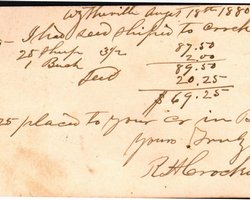 Wytheville Augt 18th 1880
I had seed shiped to Crock
25 Sheep 3 1/2 87.50
1 Buck 2.00
89.50
Seed 20.25
$ 69.25
25 placed to your cr in B
yours Truly
R H Crocke